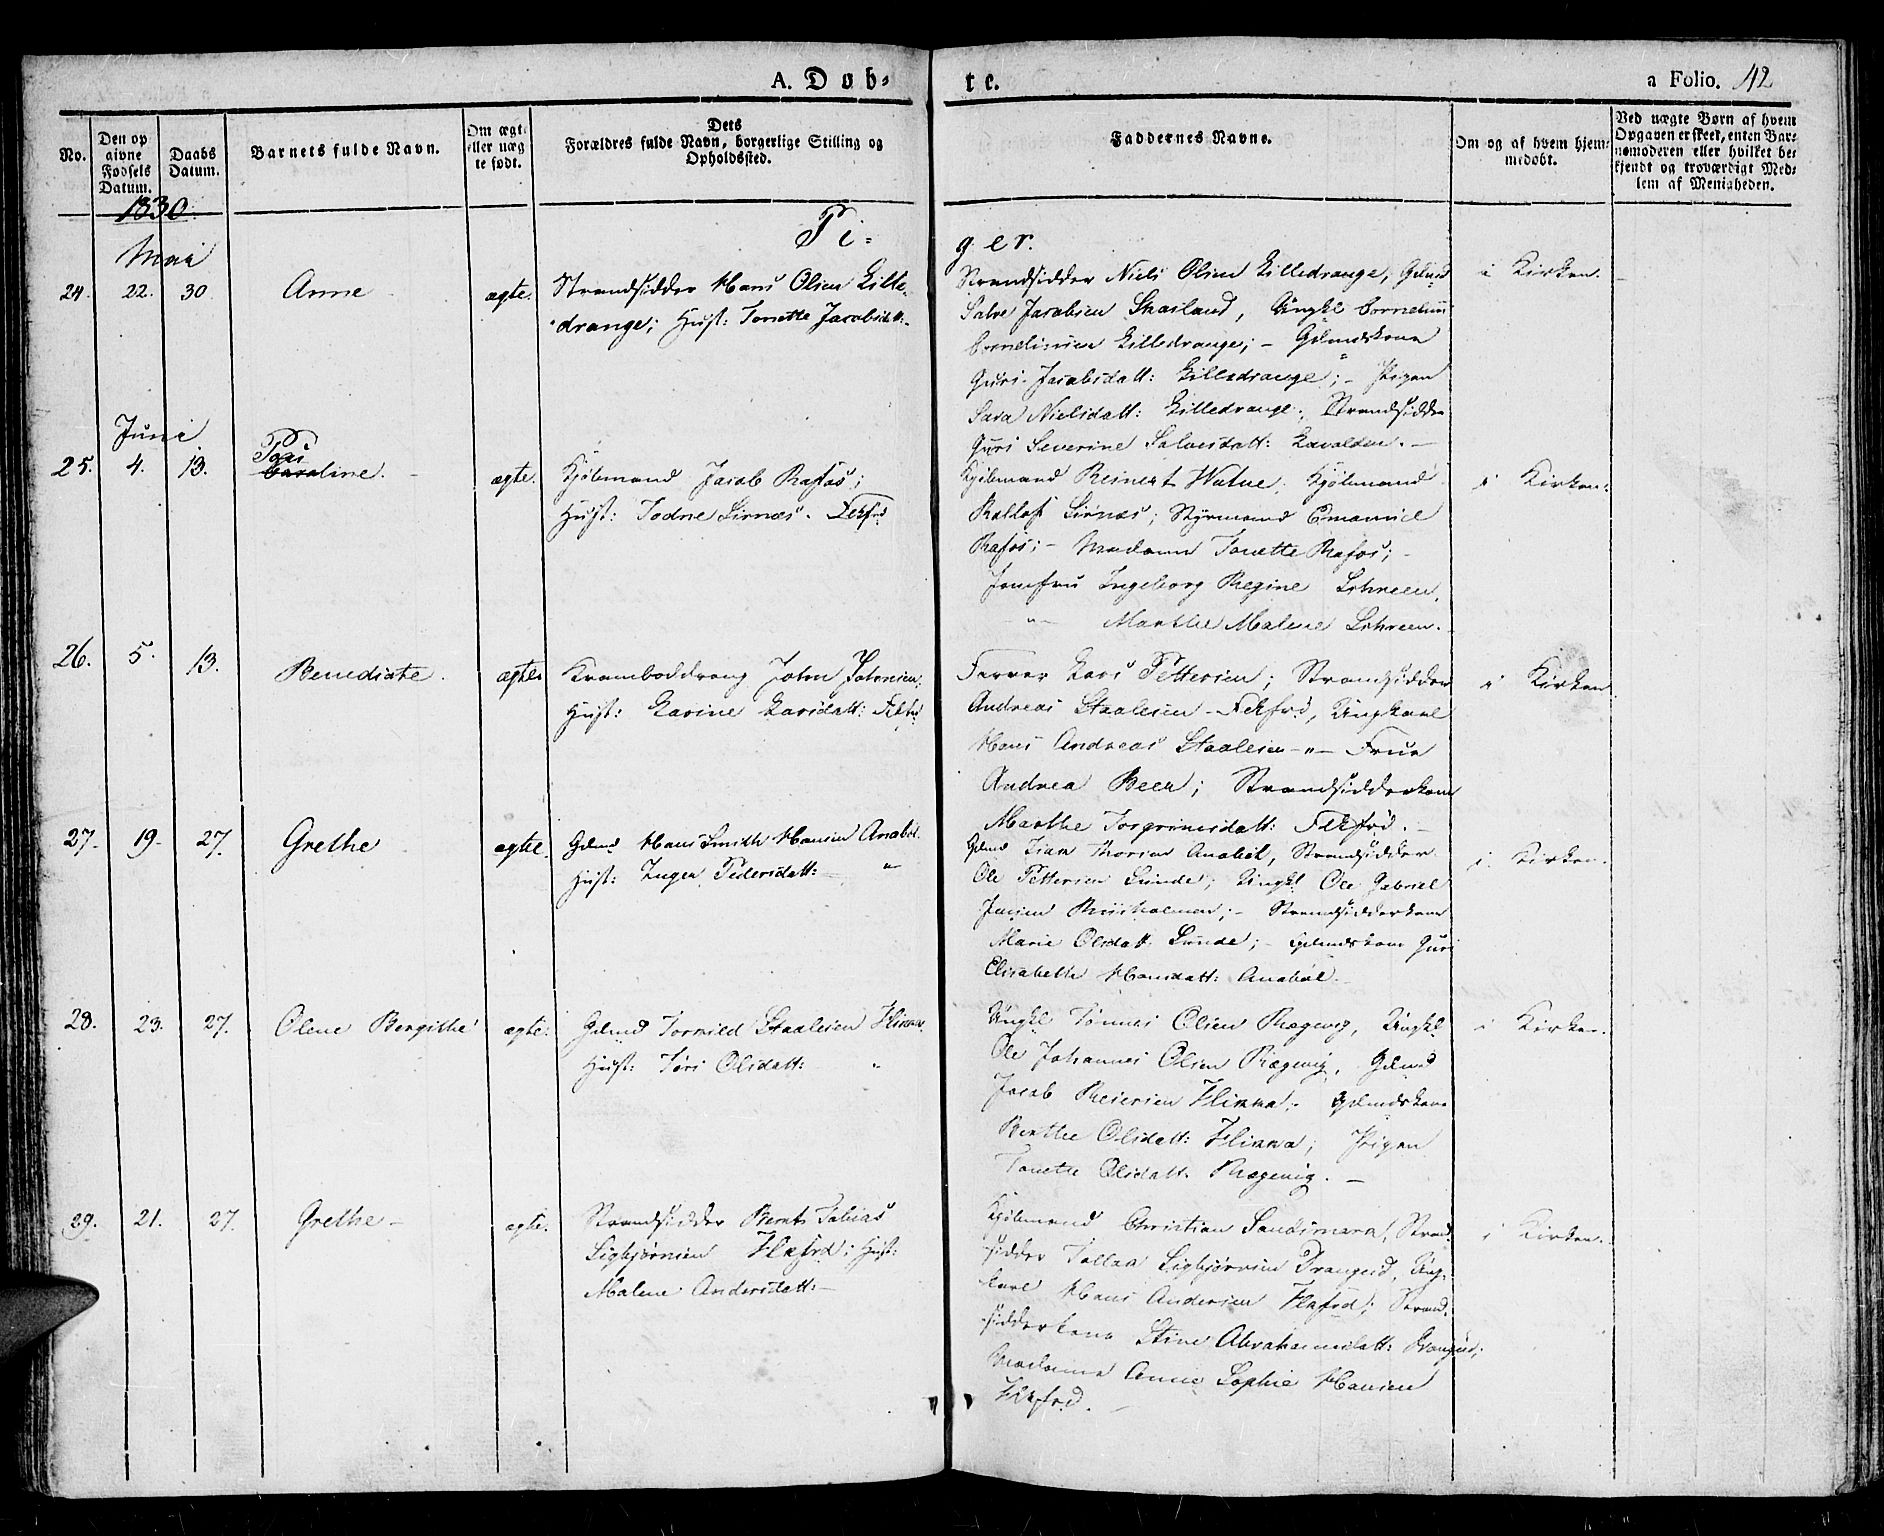 A. Døb-
te.
a Folio. 42
No.
Den op
givne
Fødsels
Datum.
Daabs
Datum.
Barnets fulde Navn.
Om ægte
eller uæg
te født.
Dets
Forældres fulde Navn, borgerlige Stilling og
Opholdssted.
Faddernes Navne.
Om og af hvem hjem-
medøbt.
Ved uægte Børn af hvem
Opgaven er skeet, enten Bar-
nemoderen eller hvilket be-
kjendt og troværdigt Med-
lem af Menigheden.
1830.
Pi-
ger.
Mai
24. 22. 30. Anne ægte. Strandsidder Hans Olsen Lille-
drange; Hust: Tonette Jacobsdatt:
Strandsidder Niels Olsen Lilledrange, Gdmd
Salve Jacobsen Skailand, Ungkl Cornelius
Cornelissen Lilledrange; - Gdmdskone
Guri Jacobsdatt: Lilledrange; - Pigen
Sara Nielsdatt: Lilledrange. Strandsidder
Guri Severine Salvesdatt:
i Kirken.
Juni
25. 4. 13. Caroline. ægte. Kjøbmand Jacob Rafos;
Hust: Todne Sirnæs. Flekfrd
Kjøbmand Reinert Watne. Kjøbmand
Sirnæs; Styrmand Emanuel
Rafos; - Madame Tonette Rafos; -
Jomfru Ingeborg Regine Lohreen,
-"- Marthe Malene Lohreen.
i Kirken.
26. 5. 13. Benedicte. ægte Kramboddreng John Johnsen;
Hust: Larine Larsdatt: Flekfrd
Farver Lars Pettersen; Strandsidder
Andreas Staalesen - Flekfrd, Ungkarl
Hans Andreas Staalesen -"- Frue
Andrea Beer; Strandsidderkone
Marthe Torgrimsdatt: Flekfrd. -
i Kirken
27. 19. 27. Grethe ægte. Gdmd Hans Smith Hansen Anabel.
Hust: Inger Pedersdatt: "
Gdmd Thorsen Anabel, Strandsidder
Ole Pettersen Sunde; Ungkl Ole Gabriel
Jensen Riisholmen; - Strandsidderkone
Marie Olsdatt: Sunde; - Gdmdskone Guri
Elisabeth Hansdatt: Anabel.
i Kirken.
28. 23. 27. Olene Bergithe ægte: Gdmd Tormild Staalesen Flikka
Hust: Tøri Olsdatt: "
Ungkl Tønnes Olsen Rægevig, Ungkl
Ole Johannes Olsen Rægevig, Gdmd
Jacob Reiersen Flikka, Gdmdskone
Berthe Olsdatt: Flikka; Pigen
Tonette Olsdatt. Rægevig. -
i Kirken.
29. 21. 27. Grethe - ægte. Strandsidder Bernt Tobias
Sigbjørnsen Flekfrd; Hust:
Malene Andersdatt: -
Kjøbmand Christian Sandsmark, Strand-
sidder Tollak Sigbjørnsen Drangeid, Ung-
karl Hans Andersen Flekfrd; Strand-
sidderkone Stine Abrahamsdatt: Drangeid;
Madame Anne Sophie Hansen
Flekfrd. -
i Kirken.